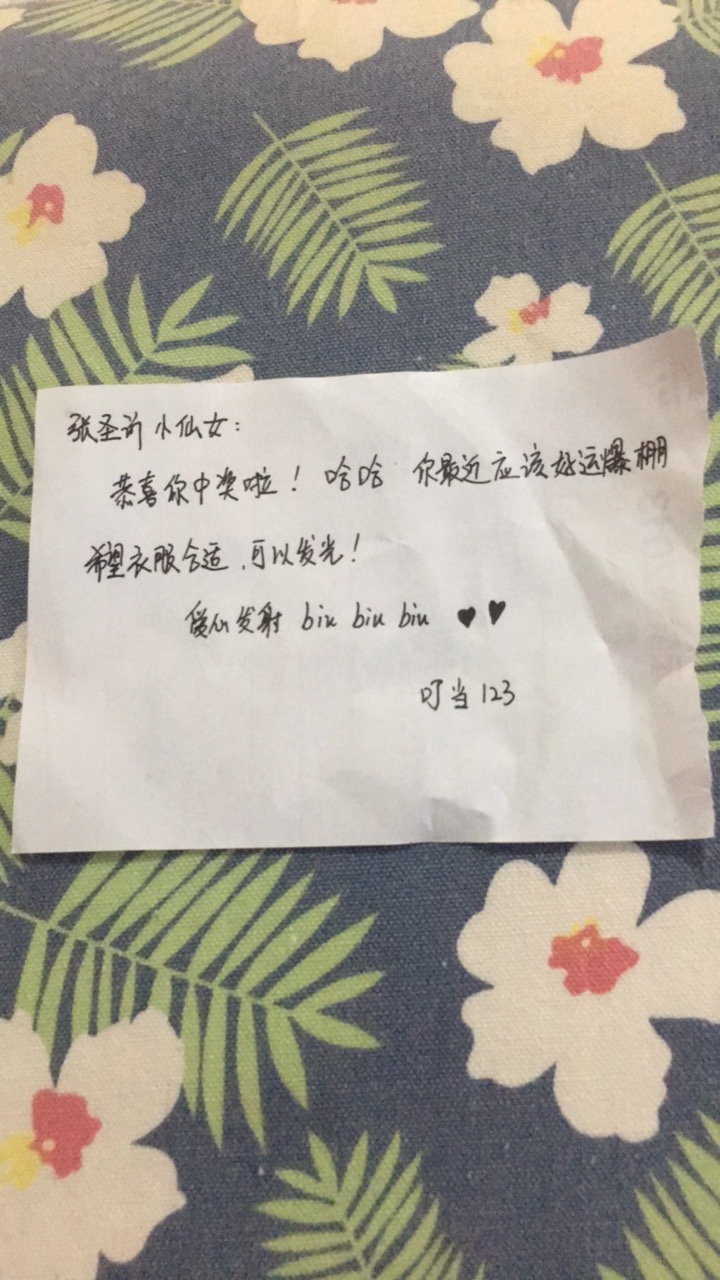 张圣沂小仙女：
恭喜你中奖啦！哈哈 你最近应该好运爆棚
希望衣服合适，可以发光！
爱心发射 biu biu biu ♥♥
叮当123